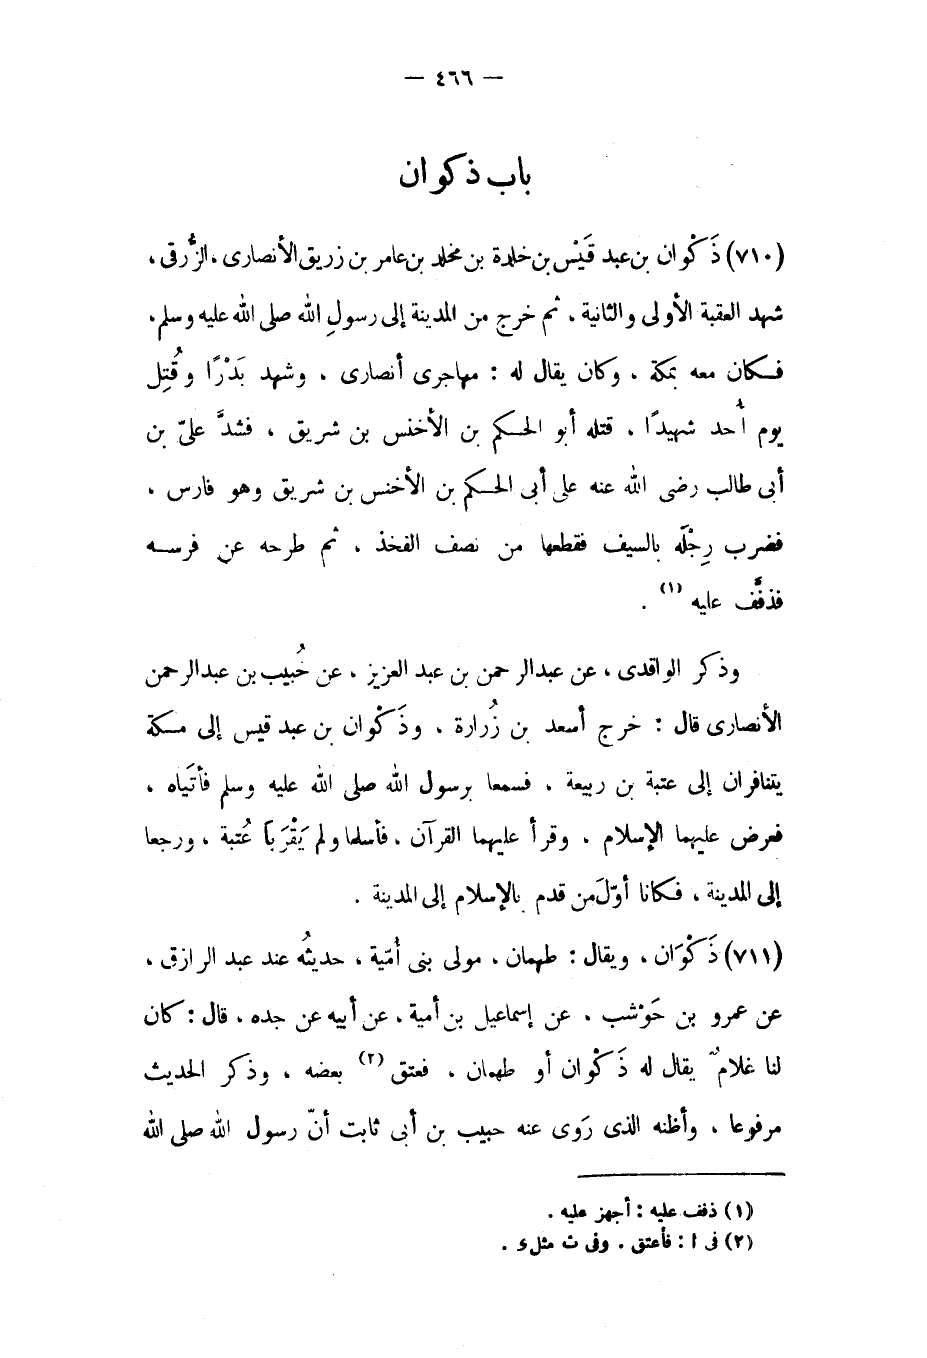 — ٤٦٦ —
باب ذكوان
(٧١٠) ذَكْوان بن عبد قَيْس بن خلدة بن مخلد بن عامر بن زريق الأنصارى، الزُّرقى،
شهد العقبة الأولى والثانية، ثم خرج من المدينة إلى رسولِ الله صلى الله عليه وسلم،
فكان معه بمكة، وكان يقال له: مهاجرى أنصارى، وشهد بَدْرًا وقُتِل
يوم أُحد شهيدًا، قتله أبو الحكم بن الأخنس بن شريق، فشدَّ علىّ بن
أبى طالب رضى الله عنه على أبى الحكم بن الأخنس بن شريق وهو فارس،
فضرب رِجْلَه بالسيف فقطعها من نصف الفخذ، ثم طرحه عن فرسه
فذفَّف عليه (١).
وذكر الواقدى، عن عبدالرحمن بن عبد العزيز، عن خُبيب بن عبدالرحمن
الأنصارى قال: خرج أسعد بن زُرارة، وذَكْوان بن عبد قيس إلى مكة
يتنافران إلى عتبة بن ربيعة، فسمعا برسول الله صلى الله عليه وسلم فأتَياه،
فعرض عليهما الإسلام، وقرأ عليهما القرآن، فأسلما ولم يَقْرَبا عُتبة، ورجعا
إلى المدينة، فكانا أوّلَ من قدم بالإسلام إلى المدينة.
(٧١١) ذَكْوَان، ويقال: طهمان، مولى بنى أُمّية، حديثُه عند عبد الرازق،
عن عمرو بن حَوْشب، عن إسماعيل بن أمية، عن أبيه عن جده، قال: كان
لنا غلامٌ يقال له ذَكْوان أو طهمان، فعتق (٢) بعضه، وذكر الحديث
مرفوعا، وأظنه الذى رَوى عنه حبيب بن أبى ثابت أنّ رسول الله صلى الله
(١) ذفف عليه: أجهز عليه.
(٢) فى ا: فأعتق. وفى ت مثل ء.